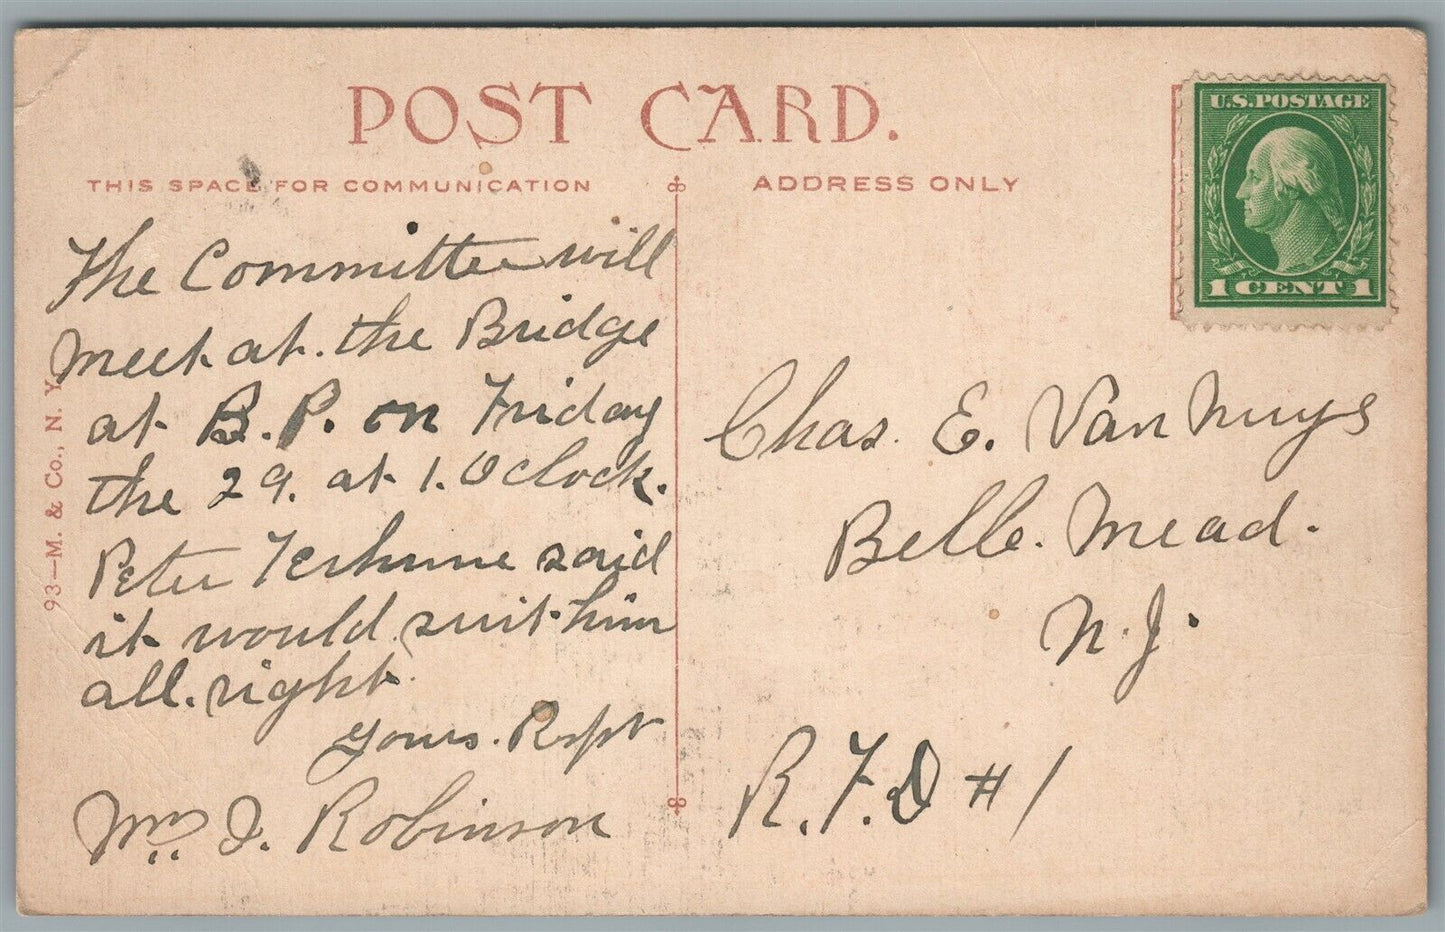 POST CARD.
THIS SPACE FOR COMMUNICATION
ADDRESS ONLY
U.S. POSTAGE
1 CENT 1
The Committee will
Meet at. the Bridge
at B.P. on Friday
the 29. at 1. O clock.
Peter Terhune said
it would suit him
all. right.
yours. Respt
Wm. J. Robinson
Chas. E. Van Nuys
Belle. Mead.
N.J.
R.F.D # 1
93—M. & Co., N. Y.